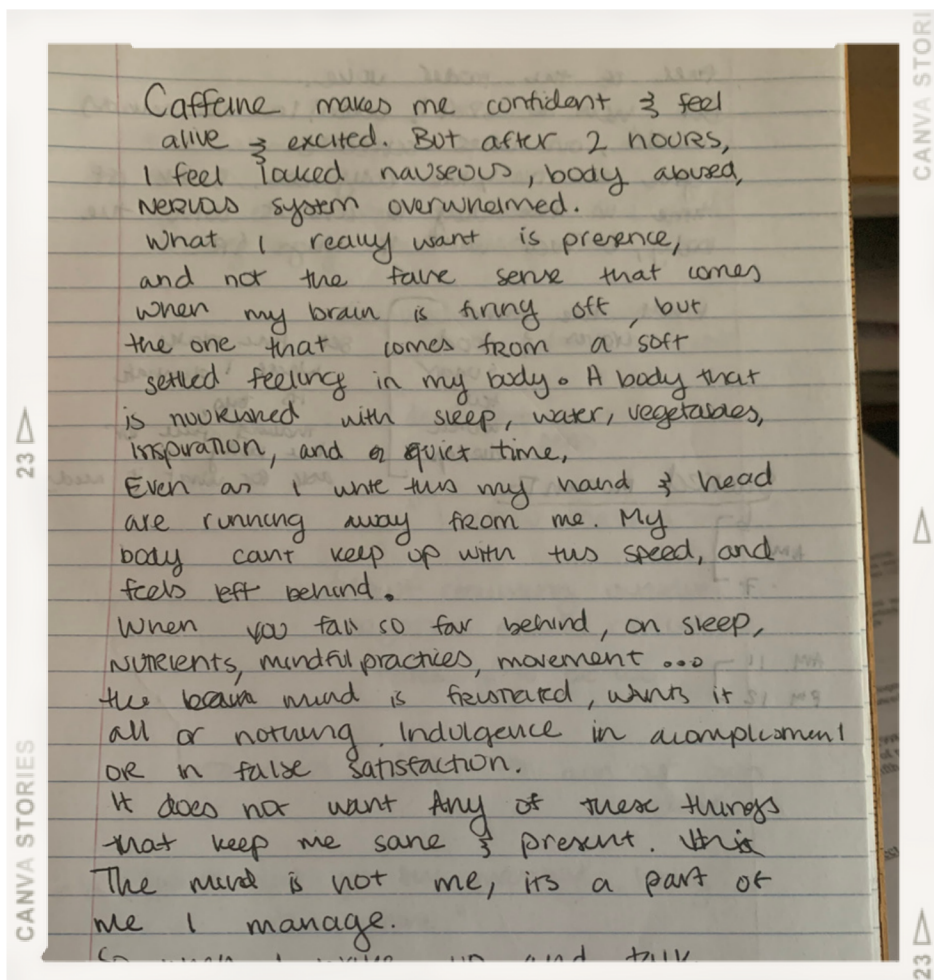 Caffeine makes me confident & feel
alive & excited. But after 2 hours,
I feel nauseous, body abused,
Nervous system overwhelmed.
What I really want is presence,
and not the fake sense that comes
when my brain is firing off, but
the one that comes from a soft
settled feeling in my body. A body that
is nourished with sleep, water, vegetables,
inspiration, and quiet time,
Even as I write this my hand & head
are running away from me. My
body cant keep up with this speed, and
feels left behind.
When you fall so far behind, on sleep,
Nutrients, mindful practies, movement ...
the mind is frustrated, wants it
all or nothing. Indulgence in acomplisment
OR in false satisfaction.
It does not want Any of these things
that keep me sane & present.
The mind is not me, its a part of
me I manage.
So when I wake up and
CANVA STORI
23
23
CANVA STORIES
23